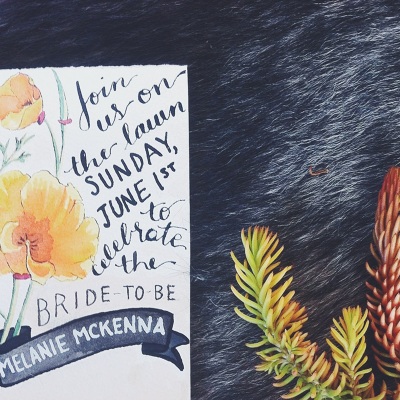 Join
us on
the lawn
SUNDAY,
JUNE 1ST
to
celebrate
the
BRIDE-TO-BE
MELANIE MCKENNA